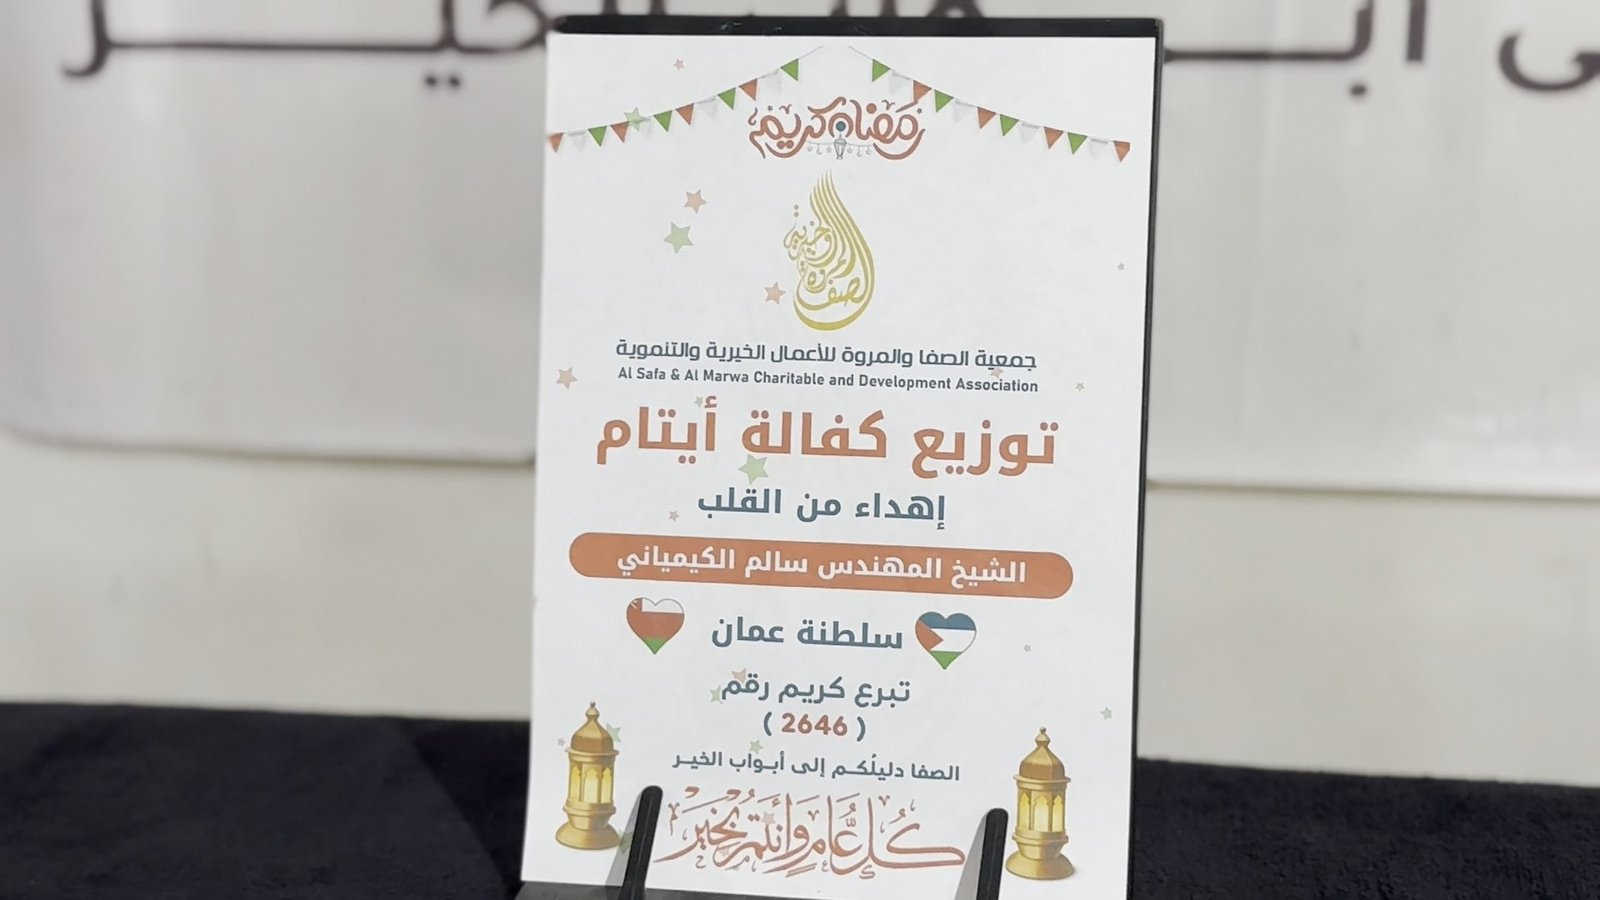 أبـ ـواب الخيـــر
رمضان كريم
الصفا والمروة الخيرية
جمعية الصفا والمروة للأعمال الخيرية والتنموية
Al Safa & Al Marwa Charitable and Development Association
توزيع كفالة أيتام
إهداء من القلب
الشيخ المهندس سالم الكيمياني
سلطنة عمان
تبرع كريم رقم
( 2646 )
الصفا دليلُكـم إلى أبـواب الخيـر
كُلُّ عَامٍ وَأَنْتُمْ بِخَيْر